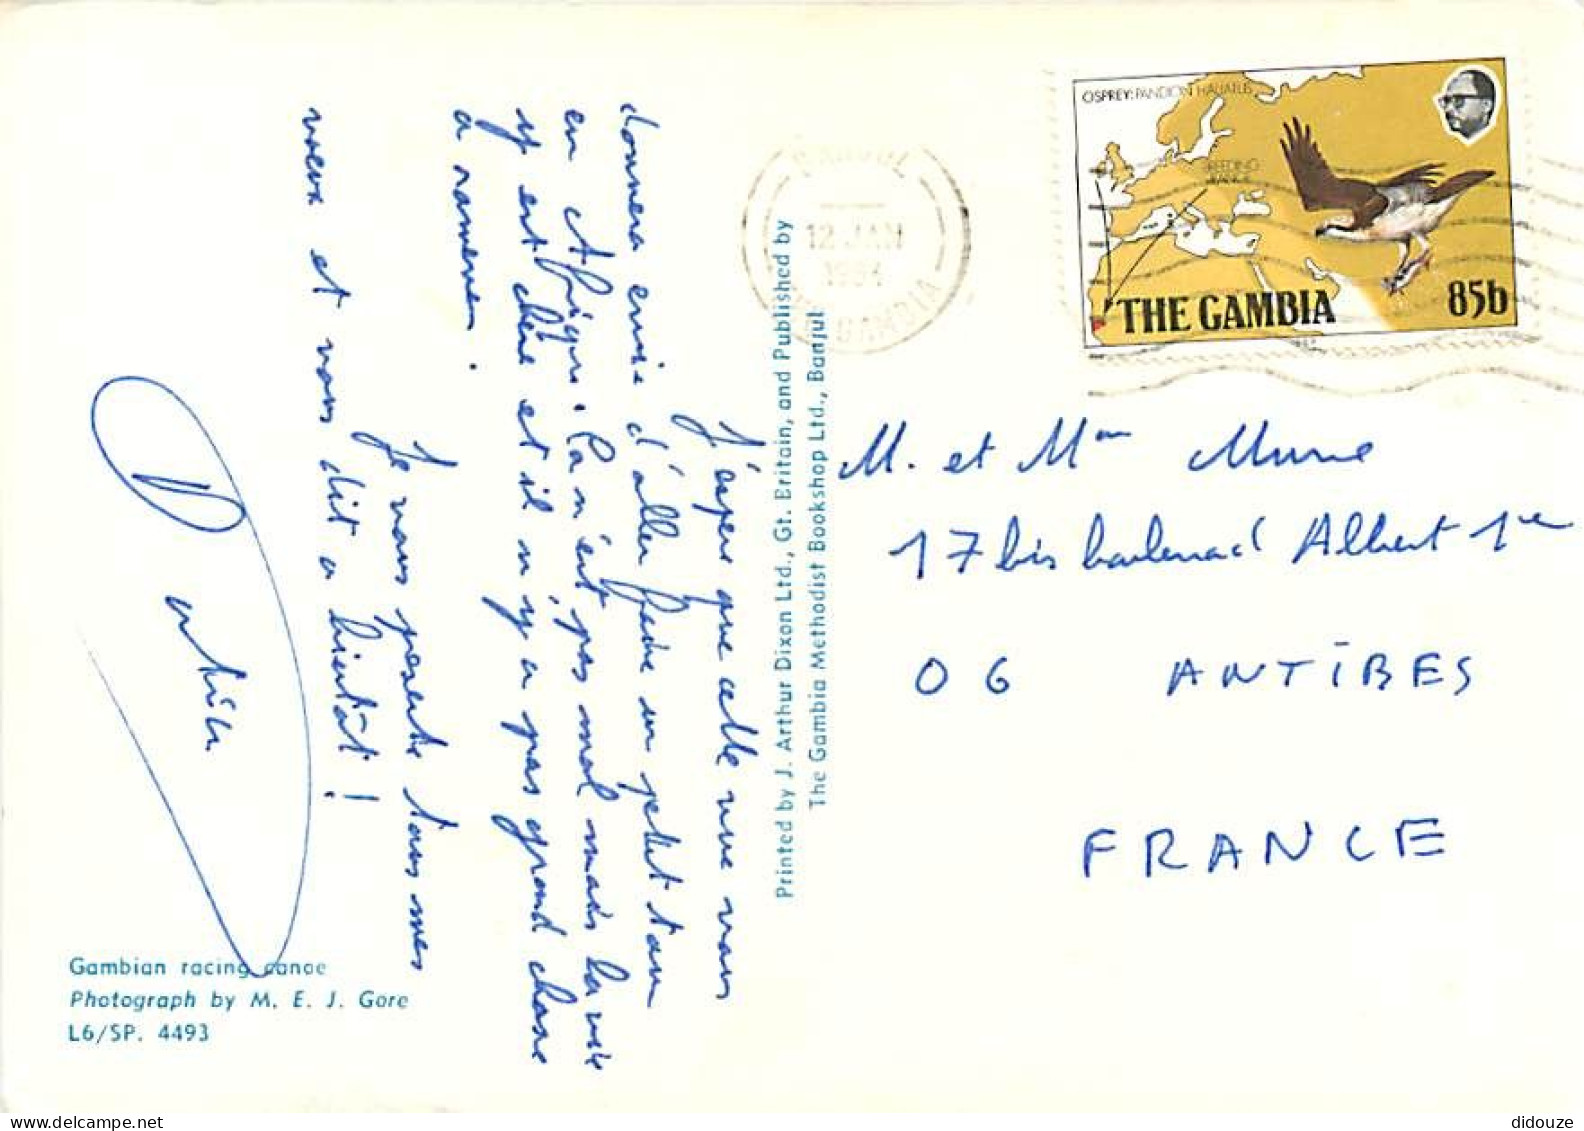 J'espère que cette vue vous
donnera envie d'aller faire un petit tour
en Afrique. Ca n'est pas mal mais la vie
y est chère et il n'y a pas grand chose
à ramener.
Je vous présente tous mes
voeux et vous dit a bientôt !
Printed by J. Arthur Dixon Ltd., Gt. Britain, and Published by
The Gambia Methodist Bookshop Ltd., Banjul
Gambian racing canoe
Photograph by M. E. J. Gore
L6/SP. 4493
12 JAN
GAMBIA
OSPREY: PANDION HALIAETUS
BREEDING
RANGE
THE GAMBIA 85b
M. et Mme
17 bis boulevard Albert 1er
06 ANTIBES
FRANCE
didouze